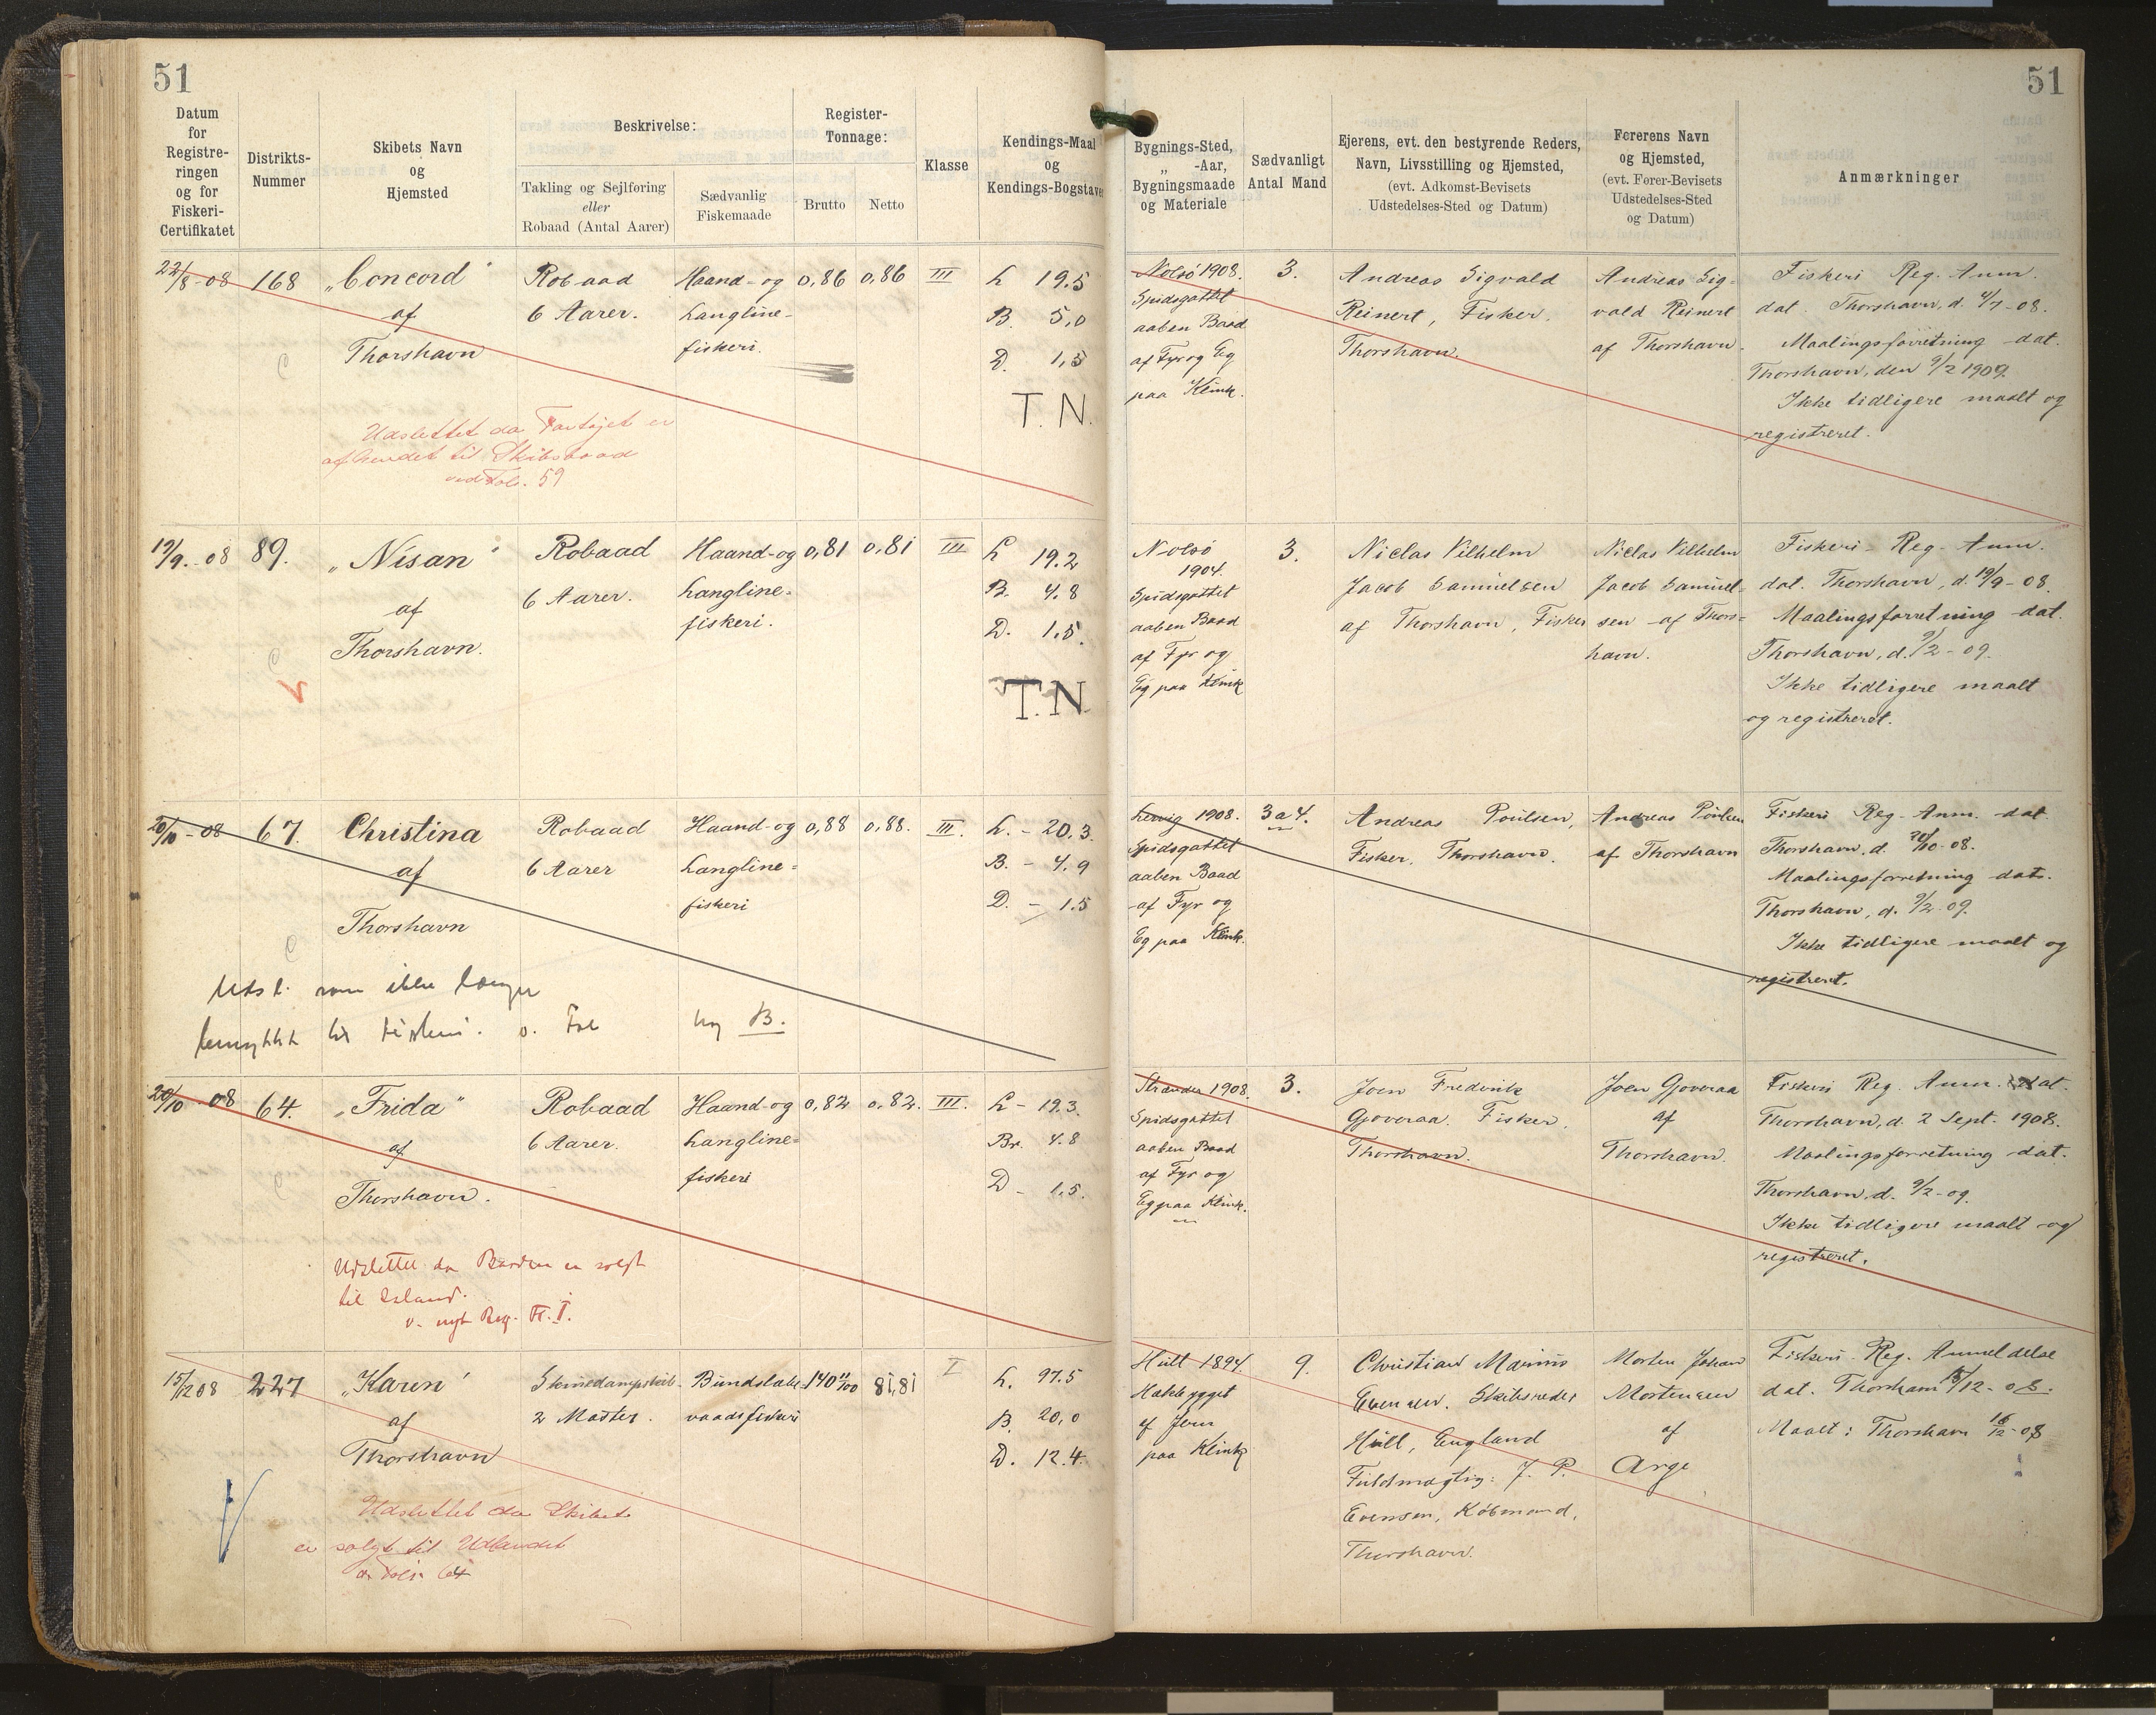 51
51
Datum
for
Registre-
ringen
og for
Fiskeri-
Certifikatet
Distrikts-
Nummer
Skibets Navn
og
Hjemsted
Beskrivelse:
Takling og Sejlføring
eller
Robaad (Antal Aarer)
Sædvanlig
Fiskemaade
Register-
Tonnage:
Brutto
Netto
Klasse
Kendings-Maal
og
Kendings-Bogstaver
Bygnings-Sted,
„ -Aar,
Bygningsmaade
og Materiale
Sædvanligt
Antal Mand
Ejerens, evt. den bestyrende Reders,
Navn, Livsstilling og Hjemsted,
(evt. Adkomst-Bevisets
Udstedelses-Sted og Datum)
Førerens Navn
og Hjemsted,
(evt. Fører-Bevisets
Udstedelses-Sted
og Datum)
Anmærkninger
22/8-08
168
„Concord"
af
Thorshavn
Robaad
6 Aarer.
Haand- og
Langline-
fiskeri.
0,86
0,86
III
L 19.5
B. 5,0
D. 1,5
T. N.
Nolsö 1908.
Spidsgattet
aaben Baad
af Fyr og Eg
paa Klink.
3.
Andreas Sigvald
Reinert, Fisker.
Thorshavn.
Andreas Sig=
vald Reinert
af Thorshavn.
Fiskeri Reg. Anm.
dat. Thorshavn, d. 4/7-08.
Maalingsforretning dat.
Thorshavn, den 9/2 1909.
Ikke tidligere maalt og
registreret.
Udslettet da Fartøjet er
afhendet til Skibsbaad
vid Fol. 59
19/9.-08
89.
„Nisan"
af
Thorshavn.
Robaad
6 Aarer.
Haand-og
Langline=
fiskeri.
0,81
0,81
III
L 19.2
B. 4.8
D. 1.5.
T. N
Nolsö
1904.
Spidsgattet
aaben Baad
af Fyr og
Eg paa Klink
3.
Niclas Vilhelm
Jacob Samuelsen
af Thorshavn, Fisker
Niclas Vilhelm
Jacob Samuel=
sen af Thors=
havn.
Fiskeri- Reg. Anm.
dat. Thorshavn, d. 19/9-08.
Maalingsforretning dat.
Thorshavn, d. 9/2-09.
Ikke tidligere maalt
og registreret.
20/10-08
67.
Christina
af
Thorshavn
Robaad
6 Aarer
Haand-og
Langline=
fiskeri
0,88
0,88.
III.
L. - 20.3.
B. - 4.9
D. - 1.5
1908.
Spidsgattet
aaben Baad
af Fyr og
Eg paa Klink.
3 a 4.
Andreas Poulsen,
Fisker, Thorshavn.
Andreas Poulsen
af Thorshavn
Fiskeri Reg. Anm. dat
Thorshavn, d. 20/10-08.
Maalingsforretning dat.
Thorshavn, d. 9/2-09.
Ikke tidligere maalt og
registreret.
Udsl. som ikke længer
benyttet til Fiskeri. v. Fol
B.
20/10-08
64.
„Frida"
af
Thorshavn.
Robaad
6 Aarer.
Haand-og
Langline=
fiskeri
0,82
0,82.
III.
L - 19.3.
Br. 4.8
D - 1.5.
Strender 1908.
Spidsgattet
aaben Baad
af Fyr og
Eg paa Klink.
3.
Joen Frederik
Gjoveraa. Fisker.
Thorshavn.
Joen Gjoveraa
af
Thorshavn.
Fiskeri Reg. Anm. dat.
Thorshavn, d. 2 Sept. 1908.
Maalingsforretning dat.
Thorshavn, d. 9/2-09.
Ikke tidligere maalt og
registreret.
Udslettet da Baaden er solgt
til Island.
v. nyt Reg. Fr. I.
15/12 08
227
„Karen"
af
Thorshavn
Skruedampskib.
2 Master.
Bundslæbe-
vaadsfiskeri
140 11/100
81,81
I
L. 97.5
B. 20,0
D. 12.4.
Hull 1894.
Hækbygget
af Jern
paa Klink
9.
Christian Marius
Evensen. Skibsreder
Hull, England
Fuldmægtig: J. P.
Evensen, Købmand,
Thorshavn.
Morten Johan
Mortensen
af
Arge
Fiskeri- Reg. Anmeldelse
dat. Thorshavn 15/12-08.
Maalt: Thorshavn 16/12-08
Udslettet da Skibet
er solgt til Udlandet
Folio 64